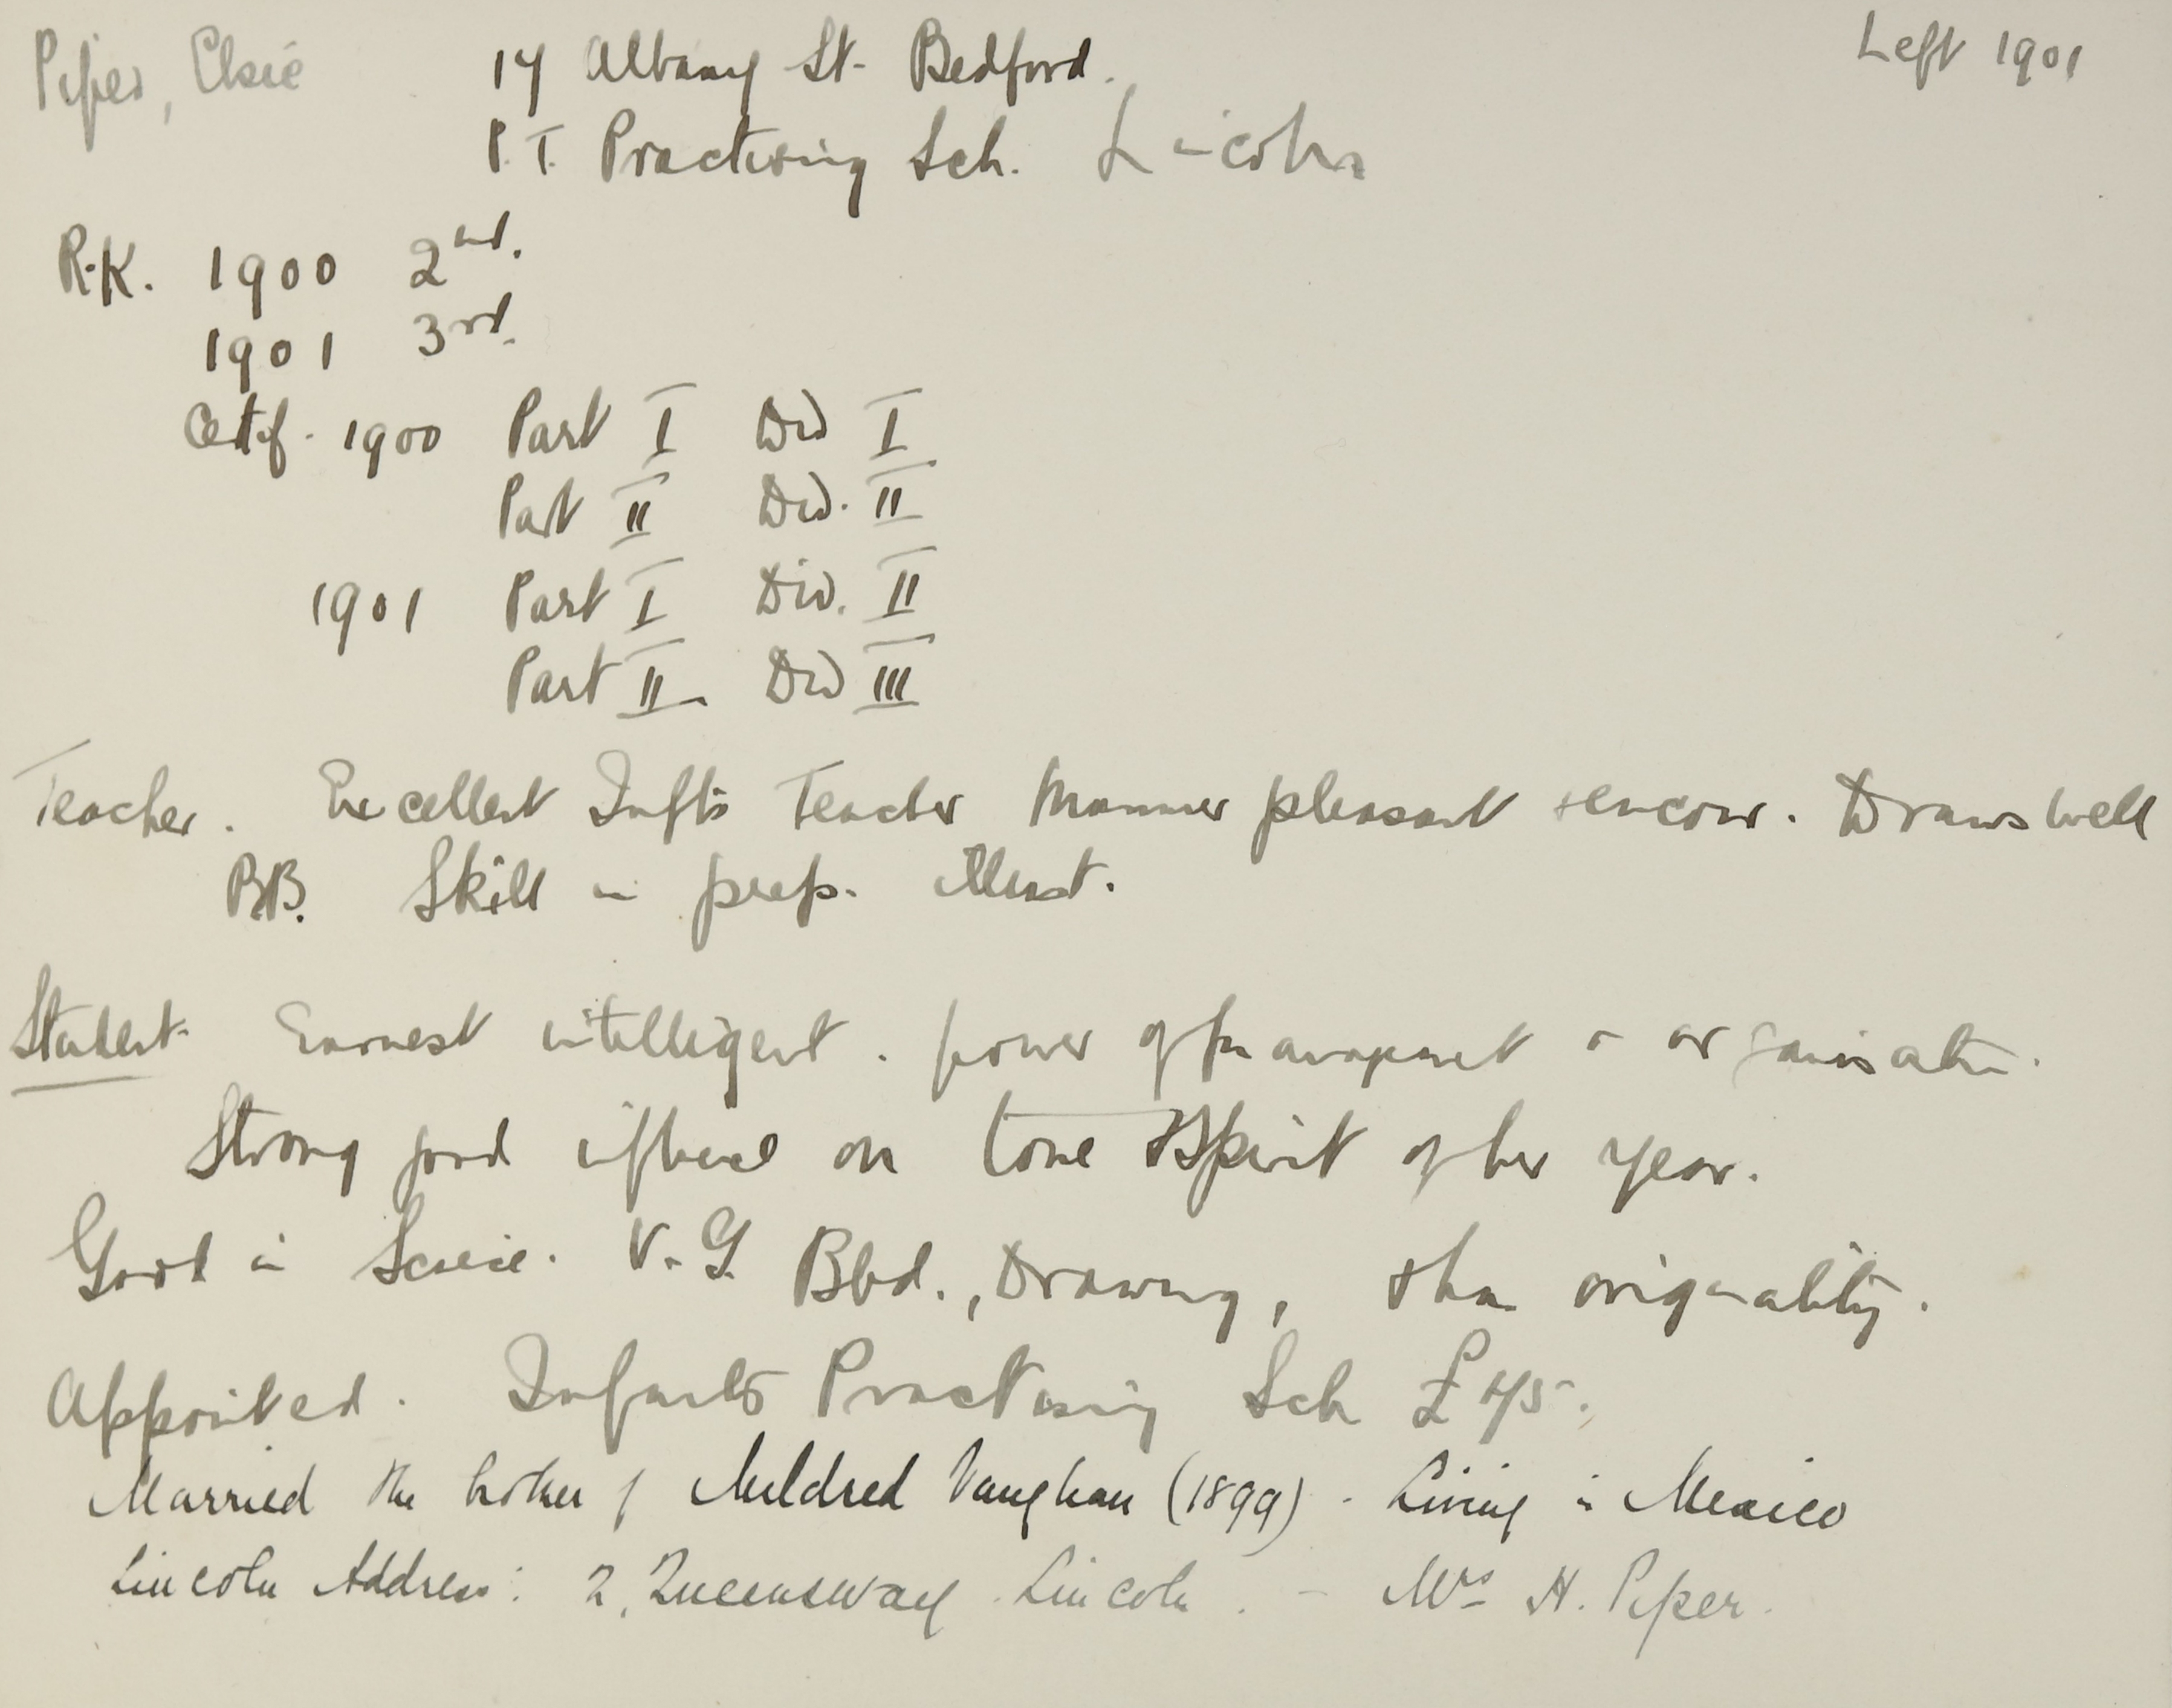 Piper, Elsie 17 Albany St. Bedford. Left 1901
P.T. Practising Sch. Lincoln
R.K. 1900 2nd.
1901 3rd.
Certif. 1900 Part I Div I
Part II Div. II
1901 Part I Div. II
Part II Div III
Teacher. Excellent Infts Teacher Manner pleasant + encour. Draws well
BB. Skill in prep. illust.
Student Earnest intelligent. power of management & organisation.
Strong good influence on tone & spirit of her year.
Good in Science. V.G. Bbd., Drawing, originality.
Appointed. Infants Practising Sch £75.
Married the brother of Mildred Vaughan (1899). Living in Mexico
Lincoln Address: 2, Queensway Lincoln. - Mrs H. Piper.